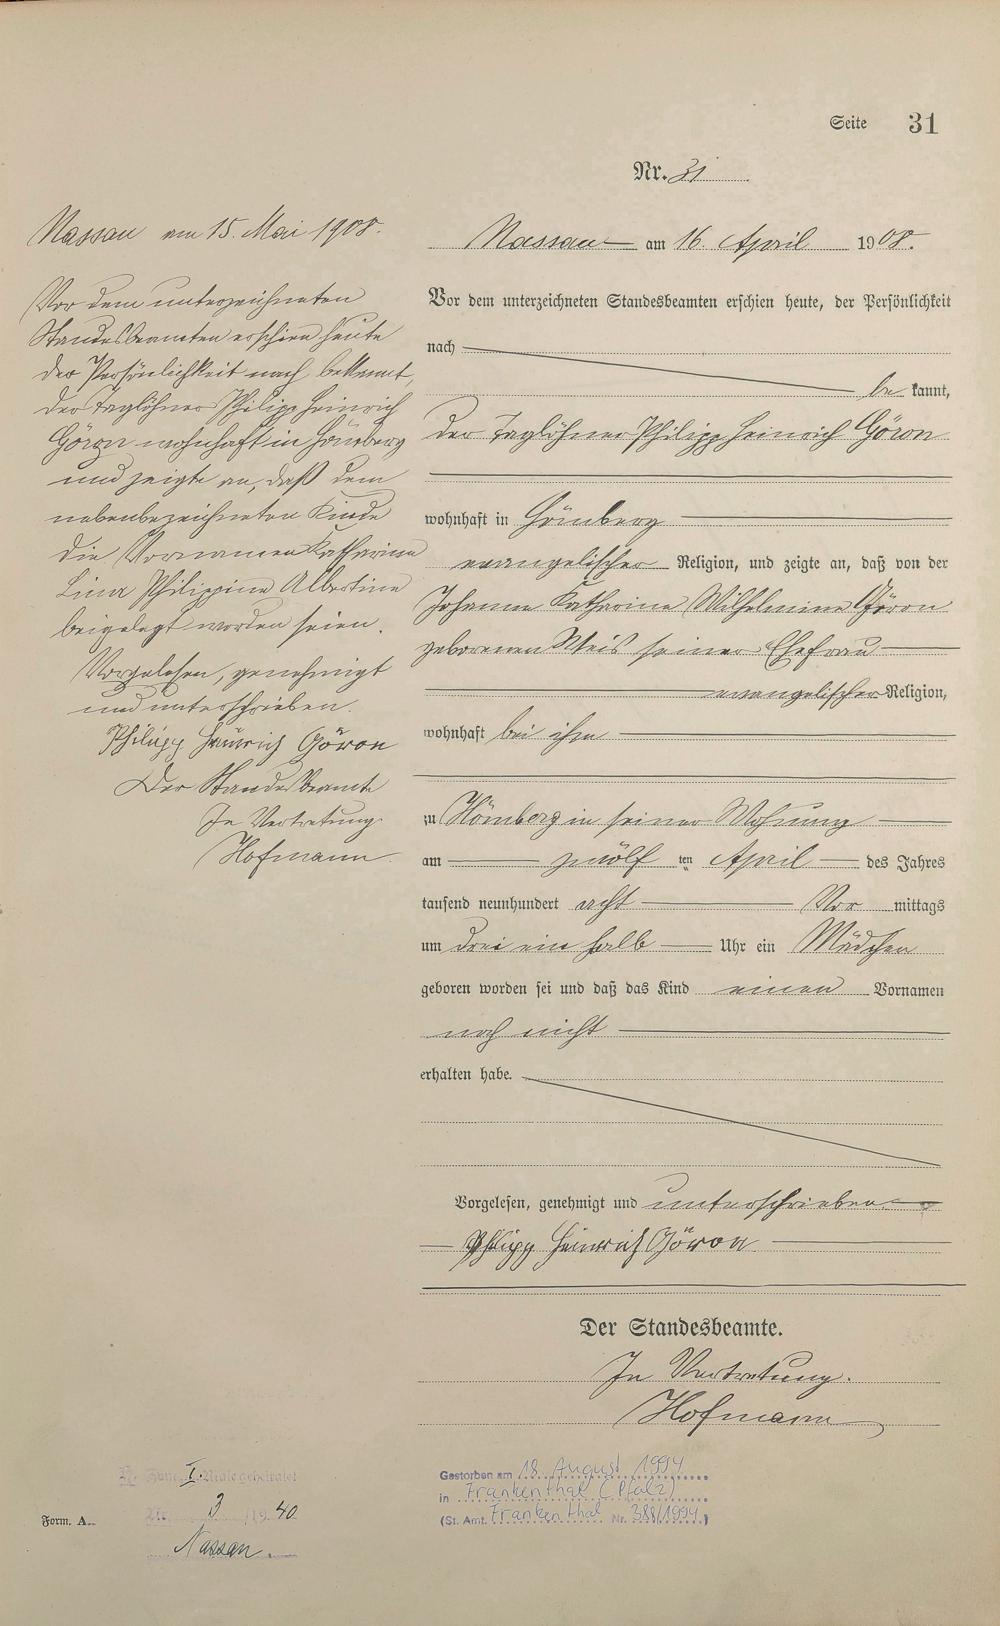 Seite 31
Nr. 31
Nassau am 15. Mai 1908.
Vor dem unterzeichneten
Standesbeamten erschien heute
der Persönlichkeit nach bekannt,
der Taglöhner Philipp Heinrich
Göron wohnhaft in Hömberg
und zeigte an, daß dem
nebenbezeichneten Kinde
die Vornamen Katharina
Lina Philippine Albertine
beigelegt worden seien.
Vorgelesen, genehmigt
und unterschrieben.
Philipp Heinrich Göron
Der Standesbeamte
In Vertretung
Hofmann
Nassau am 16. April 1908.
Vor dem unterzeichneten Standesbeamten erschien heute, der Persönlichkeit
nach
be kannt,
der Taglöhner Philipp Heinrich Göron
wohnhaft in Hömberg
evangelischer Religion, und zeigte an, daß von der
Johanna Katharina Wilhelmine Göron
geborenen Weis seiner Ehefrau
evangelischer Religion,
wohnhaft bei ihm
zu Hömberg in seiner Wohnung
am zwölf ten April des Jahres
tausend neunhundert acht Vor mittags
um drei ein halb Uhr ein Mädchen
geboren worden sei und daß das Kind einen Vornamen
noch nicht
erhalten habe.
Vorgelesen, genehmigt und unterschrieben.
Philipp Heinrich Göron
Der Standesbeamte.
In Vertretung.
Hofmann
I. Male geheiratet
Nr. 3 /19 40
Nassau.
Gestorben am 18. August 1994
in Frankenthal (Pfalz)
(St. Amt. Frankenthal Nr. 388/1994)
Form. A.